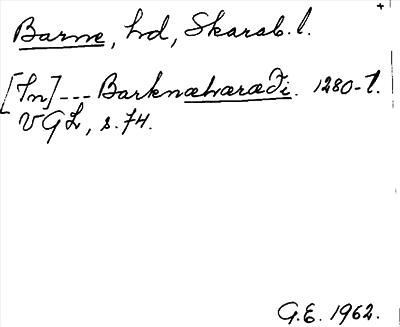 Barne, hd, Skarab. l.
[In] --- Barknæhæræði. 1280-t.
VGL, s. 74.
G.E. 1962.